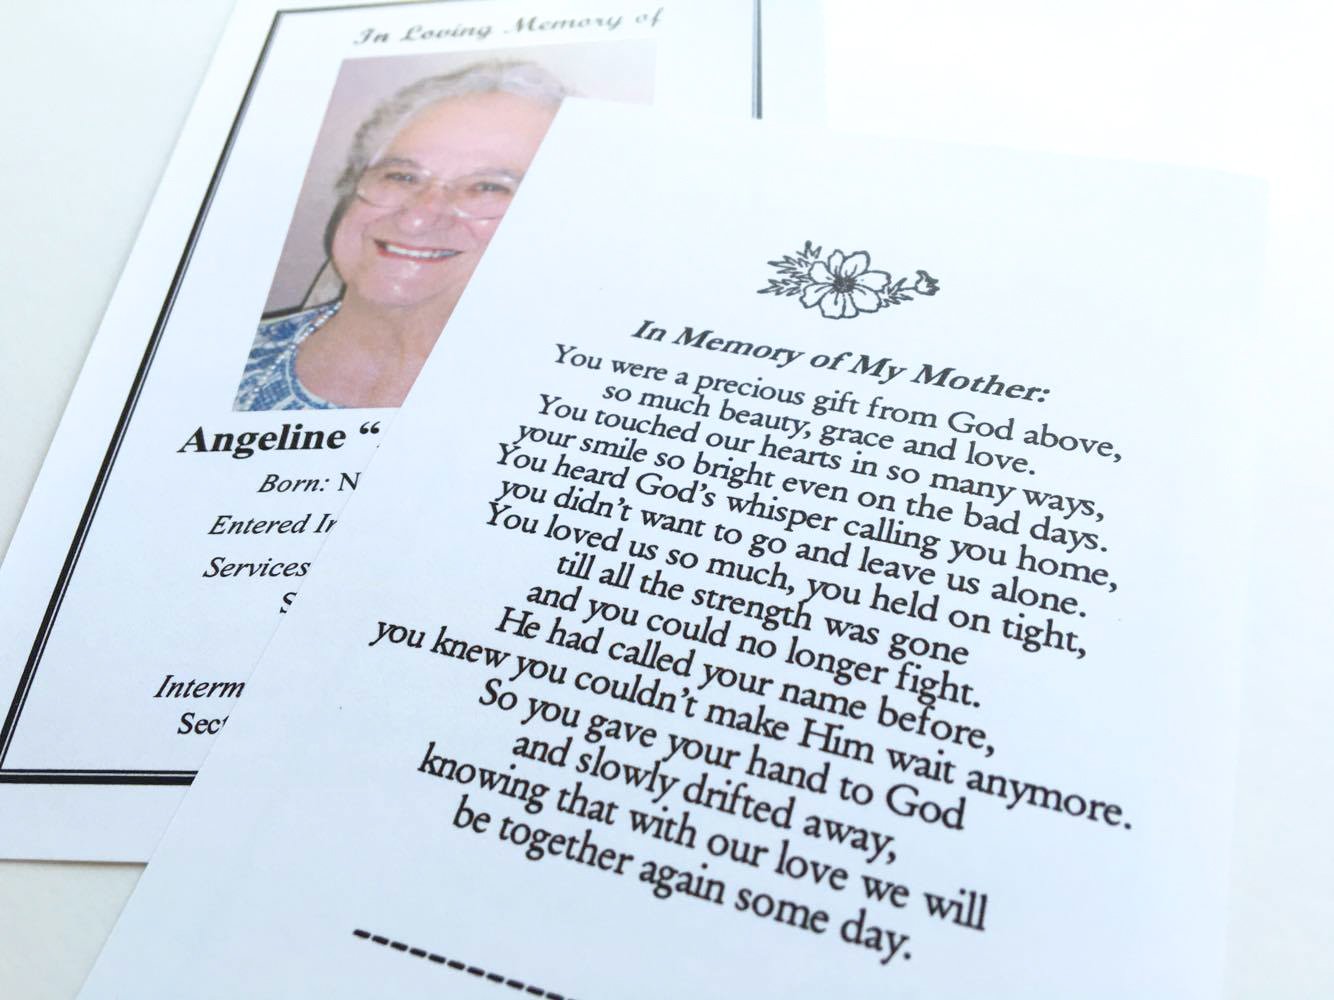 In Loving Memory of
Angeline “
Born: N
Entered
Services
S
Interm
Sect
In Memory of My Mother:
You were a precious gift from God above,
so much beauty, grace and love.
You touched our hearts in so many ways,
your smile so bright even on the bad days.
You heard God’s whisper calling you home,
you didn’t want to go and leave us alone.
You loved us so much, you held on tight,
till all the strength was gone
and you could no longer fight.
He had called your name before,
you knew you couldn’t make Him wait anymore.
So you gave your hand to God
and slowly drifted away,
knowing that with our love we will
be together again some day.